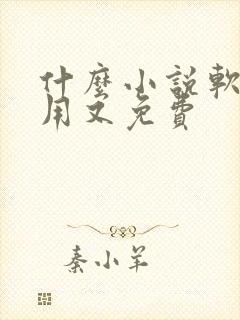 什麼小說軟
用又免費
秦小羊